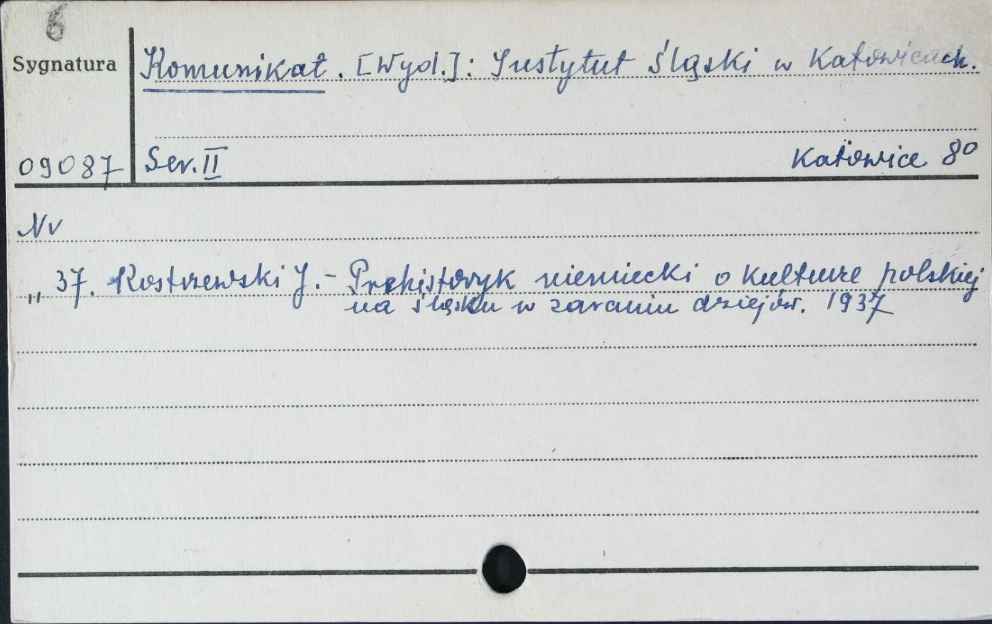 6
Sygnatura
Komunikat. [Wyd.]: Instytut Śląski w Katowicach.
09087 Ser. II Katowice 8°
Nr
„ 37. Kostrzewski J. - Prehistoryk niemiecki o kulturze polskiej
na Śląsku w zaraniu dziejów. 1937